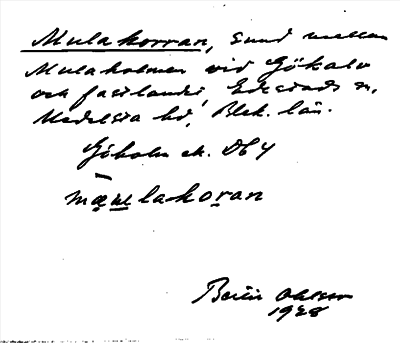 Mulakorran, sund mellan
Mulaholmen vid Gökalv
och fastlandet, Edestads sn,
Medelsta hd, Blek. län.
Göholm ek. Db4
mæulakoran
Bertil Ohlsson
1928